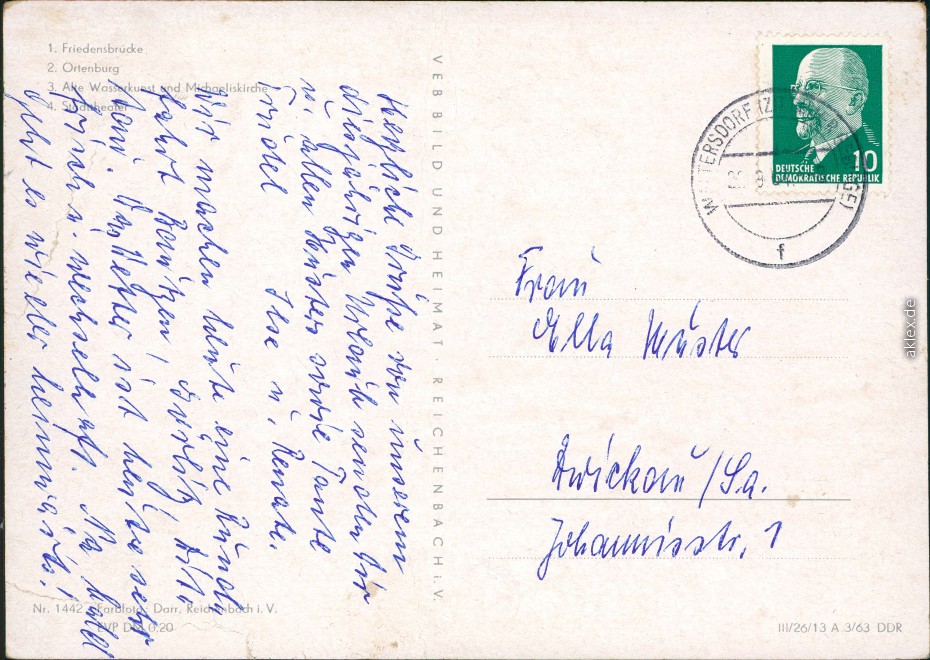 1. Friedensbrücke
2. Ortenburg
3. Alte Wasserkunst und Michaeliskirche
4. Stadttheater
Herzliche Grüße von unserem
diesjährigen Urlaub senden Dir
u. allen Müsters sowie Tante
Friedel Ilse u. Renate.
Wir machen heute eine Rund-
fahrt Bautzen, Görlitz, Zitt-
au. Das Wetter ist heute sehr
frisch u. wechselhaft. Na bald
geht es wieder heimwärts!
VEB BILD UND HEIMAT · REICHENBACH i. V.
Nr. 1442 Farbfoto: Darr, Reichenbach i. V.
EVP DM 0,20
DEUTSCHE
DEMOKRATISCHE REPUBLIK
10
f
Frau
Ella Müster
Zwickau/Sa.
Johannisstr. 1
III/26/13 A 3/63 DDR
aklex.de